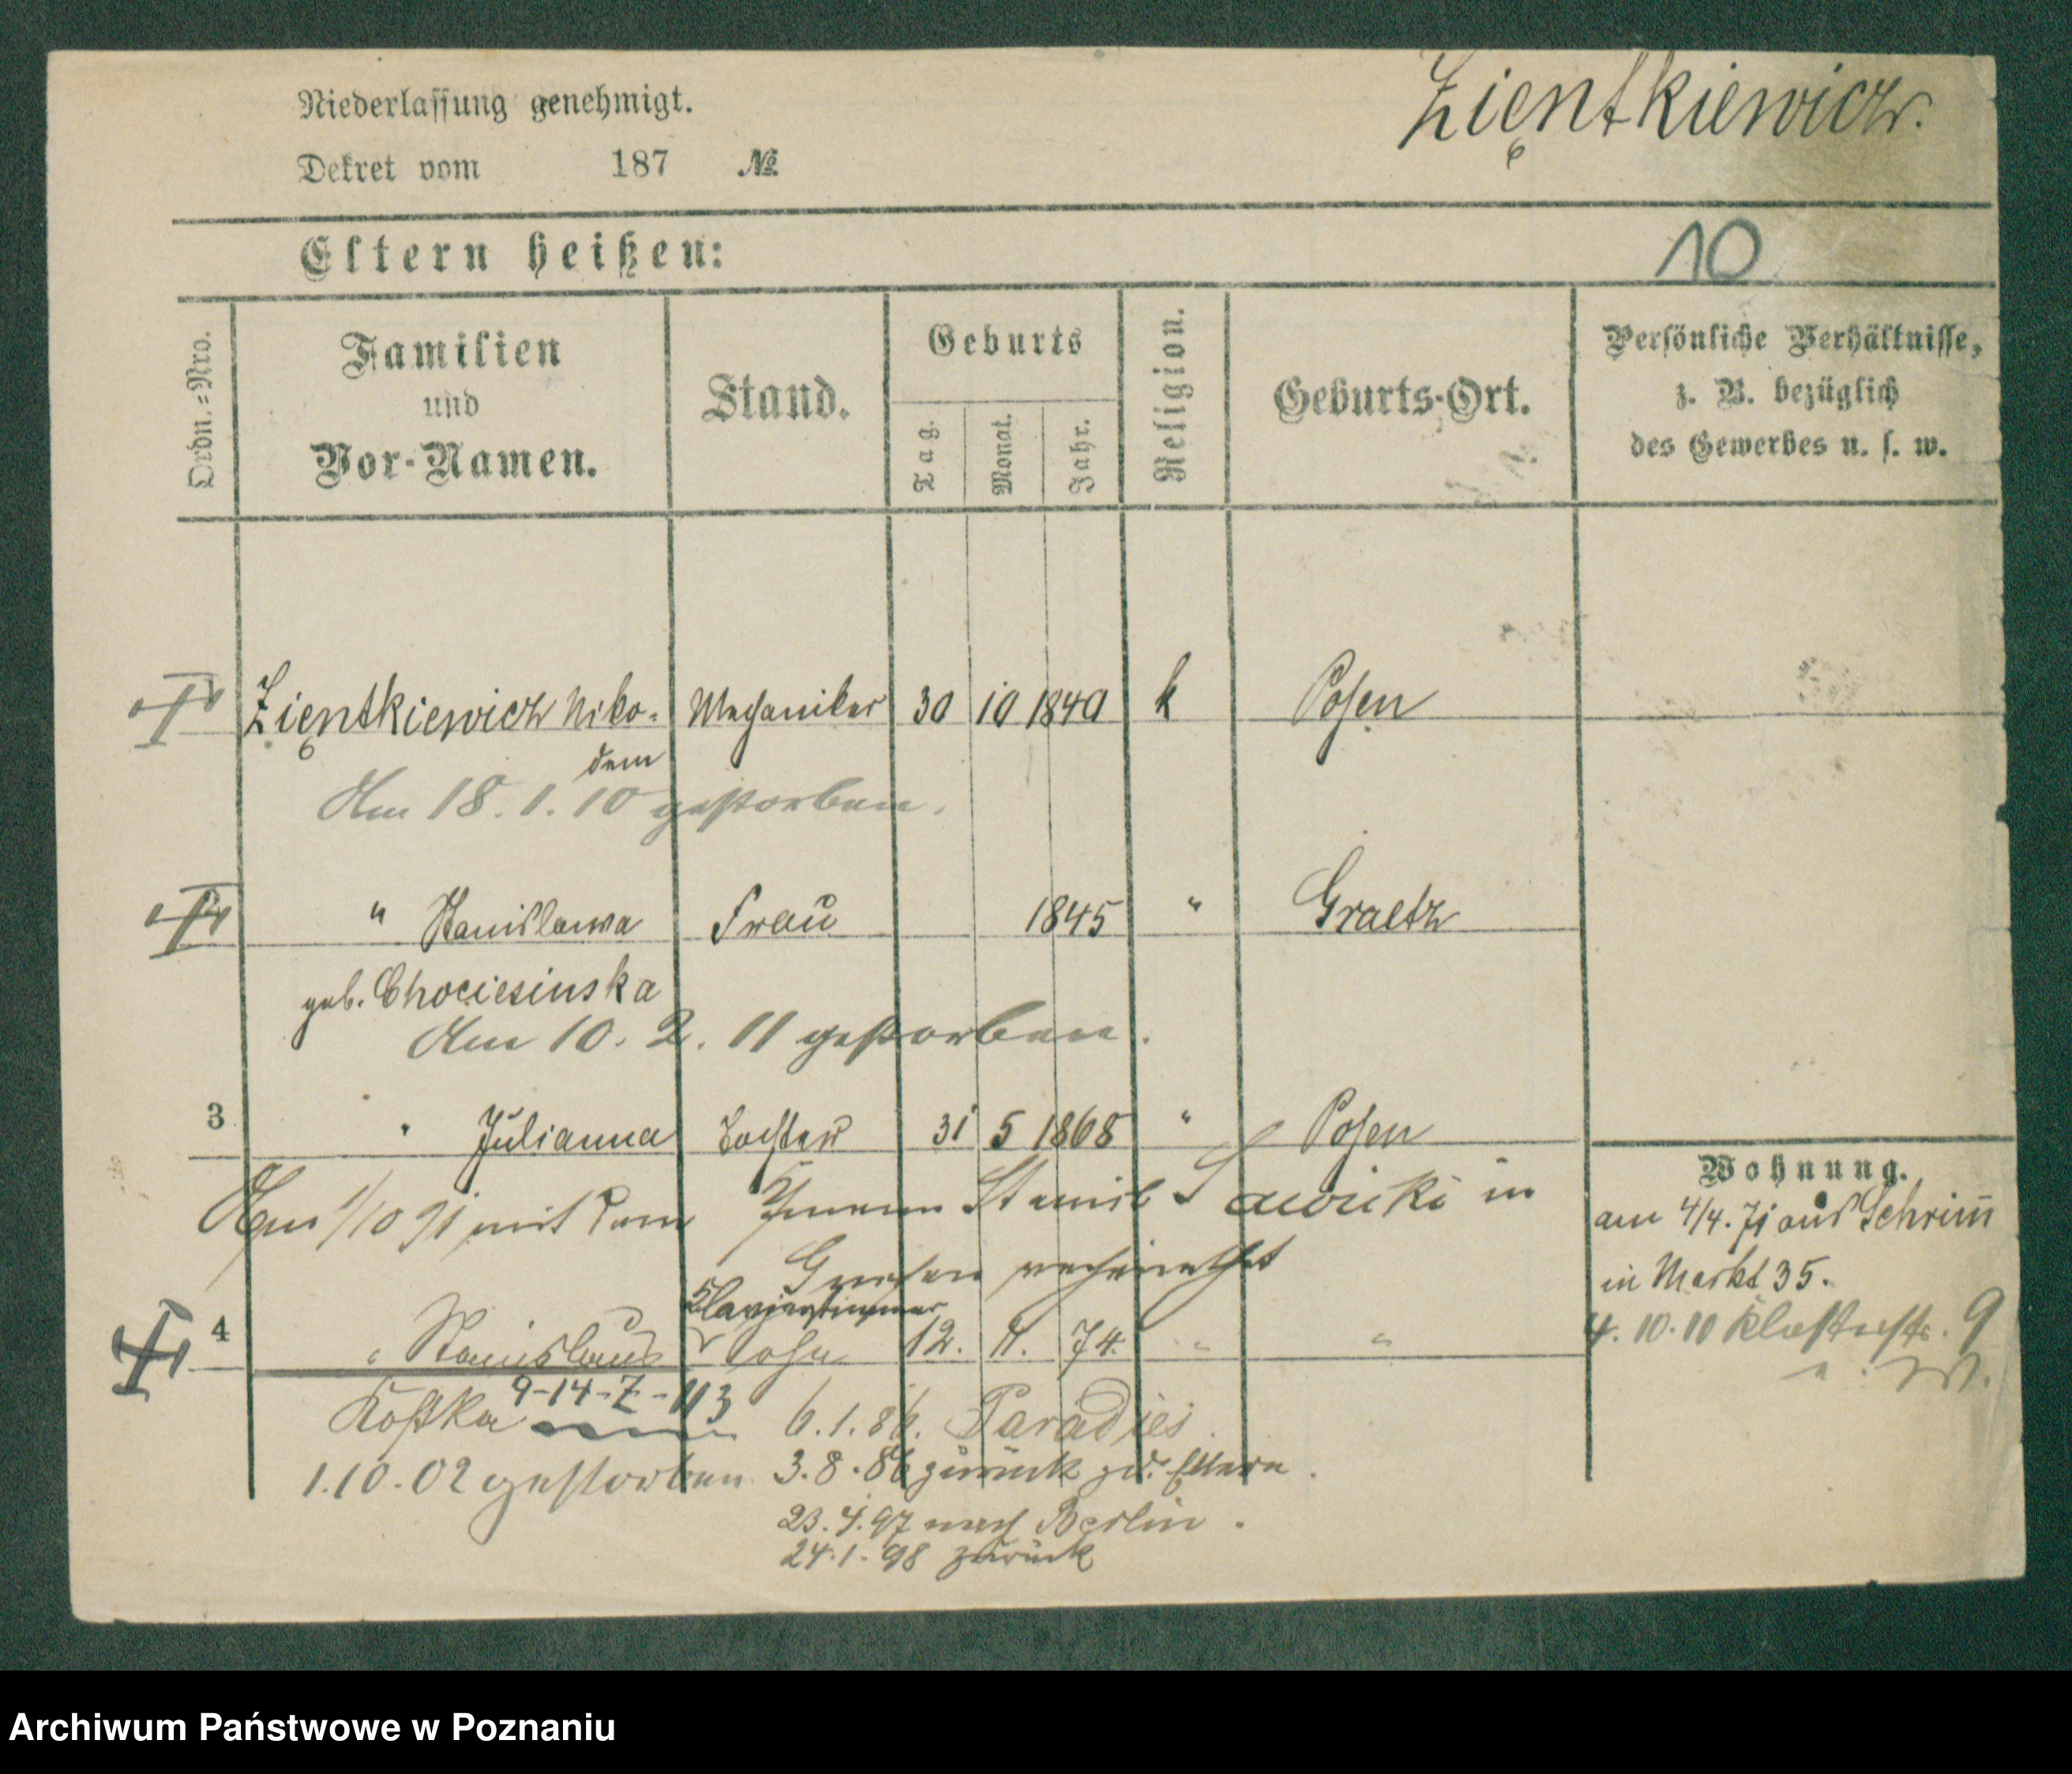 Niederlassung genehmigt.
Zientkiewicz.
Dekret vom 187 №
Eltern heißen:
10
Ordn.=Nro.
Familien
und
Vor-Namen.
Stand.
Geburts
Tag.
Monat.
Jahr.
Religion.
Geburts-Ort.
Persönliche Verhältnisse,
z. B. bezüglich
des Gewerbes u. s. w.
Zientkiewicz Niko= Mechaniker 30 10 1840 k Posen
dem
Am 18. 1. 10 gestorben.
" Stanislawa Frau 1845 " Graetz
geb. Chociesinska
Am 10. 2. 11 gestorben.
3 " Julianna Tochter 31 5 1868 " Posen
Am 1/10 91 mit dem Stanisl Sawicki in
Gnesen verheirathet
Klavierstimmer
4 " Stanislaus Sohn 12. 11. 74. " "
9-14-Z-113
Kostka 6.1.86. Paradies
1.10.02 gestorben 3.8.86 zurück zu d. Eltern.
23.4.97 nach Berlin.
24.1.98 zurück
Wohnung.
am 4/4. 71 aus Schrim̄
in Markt 35.
4. 10. 10 Klosterstr. 9
Archiwum Państwowe w Poznaniu